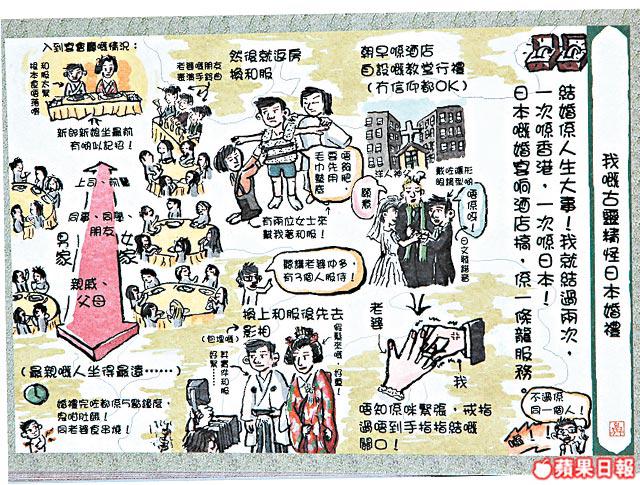 我嘅古靈精怪日本婚禮
結婚係人生大事！我就結過兩次，
一次係香港，一次係日本！
日本嘅婚宴响酒店搞，係一條龍服務。
不過係
同一個人！
朝早係酒店
自設嘅教堂行禮
（冇信仰都OK）
洋人神父
戴咗隱形
眼鏡型啲
願意
唔係呀！
老婆
我
唔知係咪緊張，戒指
過唔到手指指結嘅
關口！
然後就返房
換和服
唔夠肥
要先用
毛巾墊底
有兩位女士來
幫我著和服！
聽講老婆仲多
有3個人服侍！
換上和服後先去
影相
入到宴會廳嘅情況：
和服太緊
根本食唔落嘢
老婆嘅朋友
表演手鈴曲
新郎新娘坐最前
有啲似記招！
上司、前輩
同事、同學、
朋友
男家
女家
親戚、
父母
（最親嘅人坐得最遠……）
婚禮完咗都係5點鐘度，
鬼咁肚餓！
同老婆食串燒！
蘋果日報